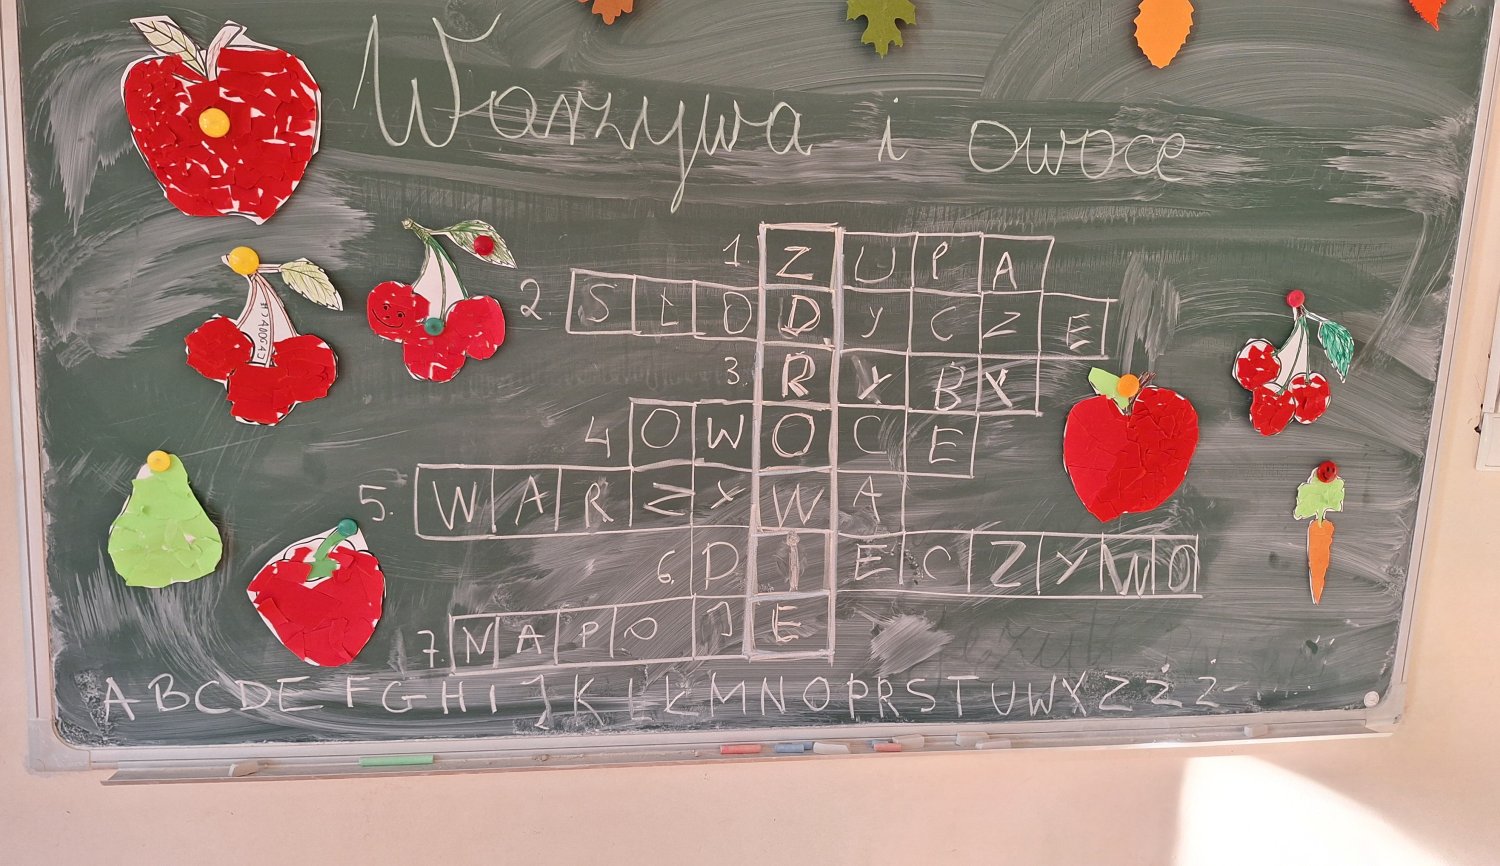 Warzywa i owoce
1. ZUPA
2 SŁODYCZE
3. RYBY
4 OWOCE
5. WARZYWA
6. DIECZYWO
7. NAPOJE
ABCDE FGHIJKLŁMNOPRSTUWXZZZ